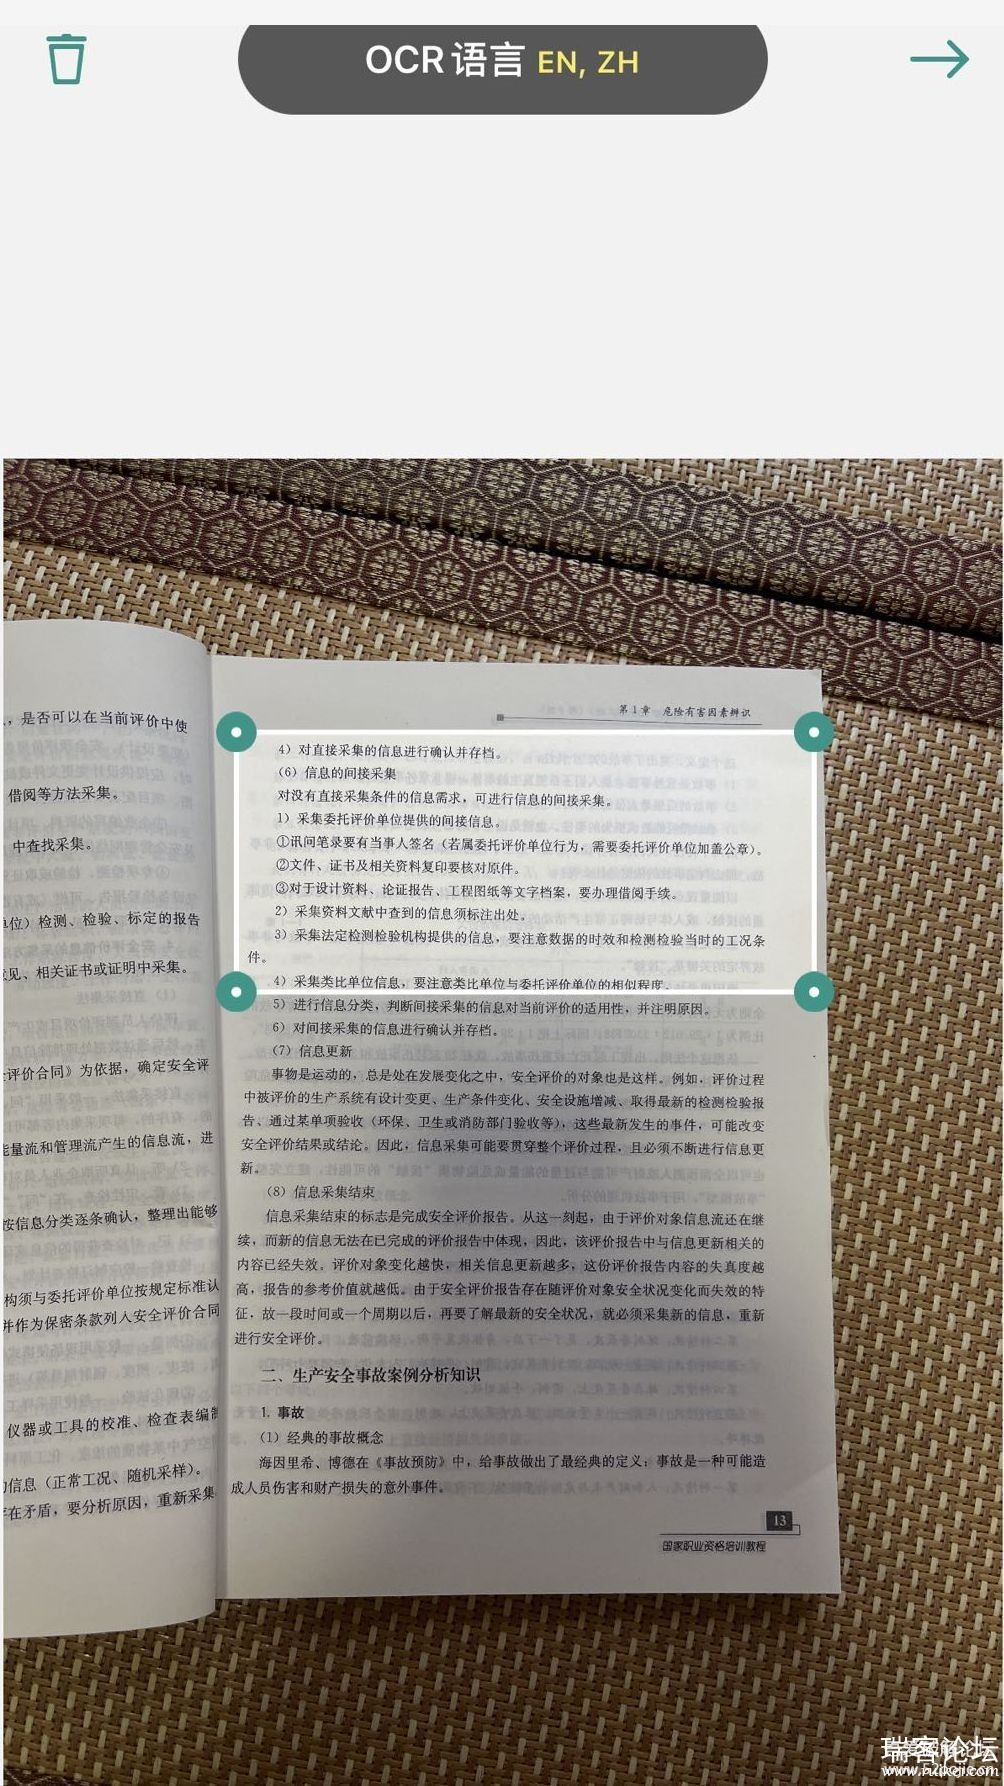 OCR 语言 EN, ZH
，是否可以在当前评价中使
借阅等方法采集。
中查找采集。
单位）检测、检验、标定的报告
意见、相关证书或证明中采集。
评价合同》为依据，确定安全评
能量流和管理流产生的信息流，进
按信息分类逐条确认，整理出能够
构须与委托评价单位按规定标准认
并作为保密条款列入安全评价合同
仪器或工具的校准、检查表编制
信息（正常工况、随机采样）。
存在矛盾，要分析原因，重新采集
第1章 危险有害因素辨识
4）对直接采集的信息进行确认并存档。
（6）信息的间接采集
对没有直接采集条件的信息需求，可进行信息的间接采集。
1）采集委托评价单位提供的间接信息。
①讯问笔录要有当事人签名（若属委托评价单位行为，需要委托评价单位加盖公章）。
②文件、证书及相关资料复印要核对原件。
③对于设计资料、论证报告、工程图纸等文字档案，要办理借阅手续。
2）采集资料文献中查到的信息须标注出处。
3）采集法定检测检验机构提供的信息，要注意数据的时效和检测检验当时的工况条
件。
4）采集类比单位信息，要注意类比单位与委托评价单位的相似程度。
5）进行信息分类，判断间接采集的信息对当前评价的适用性，并注明原因。
6）对间接采集的信息进行确认并存档。
（7）信息更新
事物是运动的，总是处在发展变化之中，安全评价的对象也是这样。例如，评价过程
中被评价的生产系统有设计变更、生产条件变化、安全设施增减、取得最新的检测检验报
告、通过某单项验收（环保、卫生或消防部门验收等），这些最新发生的事件，可能改变
安全评价结果或结论。因此，信息采集可能要贯穿整个评价过程，且必须不断进行信息更
新。
（8）信息采集结束
信息采集结束的标志是完成安全评价报告。从这一刻起，由于评价对象信息流还在继
续，而新的信息无法在已完成的评价报告中体现，因此，该评价报告中与信息更新相关的
内容已经失效。评价对象变化越快，相关信息更新越多，这份评价报告内容的失真度越
高，报告的参考价值就越低。由于安全评价报告存在随评价对象安全状况变化而失效的特
征，故一段时间或一个周期以后，再要了解最新的安全状况，就必须采集新的信息，重新
进行安全评价。
二、生产安全事故案例分析知识
1. 事故
（1）经典的事故概念
海因里希、博德在《事故预防》中，给事故做出了最经典的定义：事故是一种可能造
成人员伤害和财产损失的意外事件。
13
国家职业资格培训教程
瑞客论坛